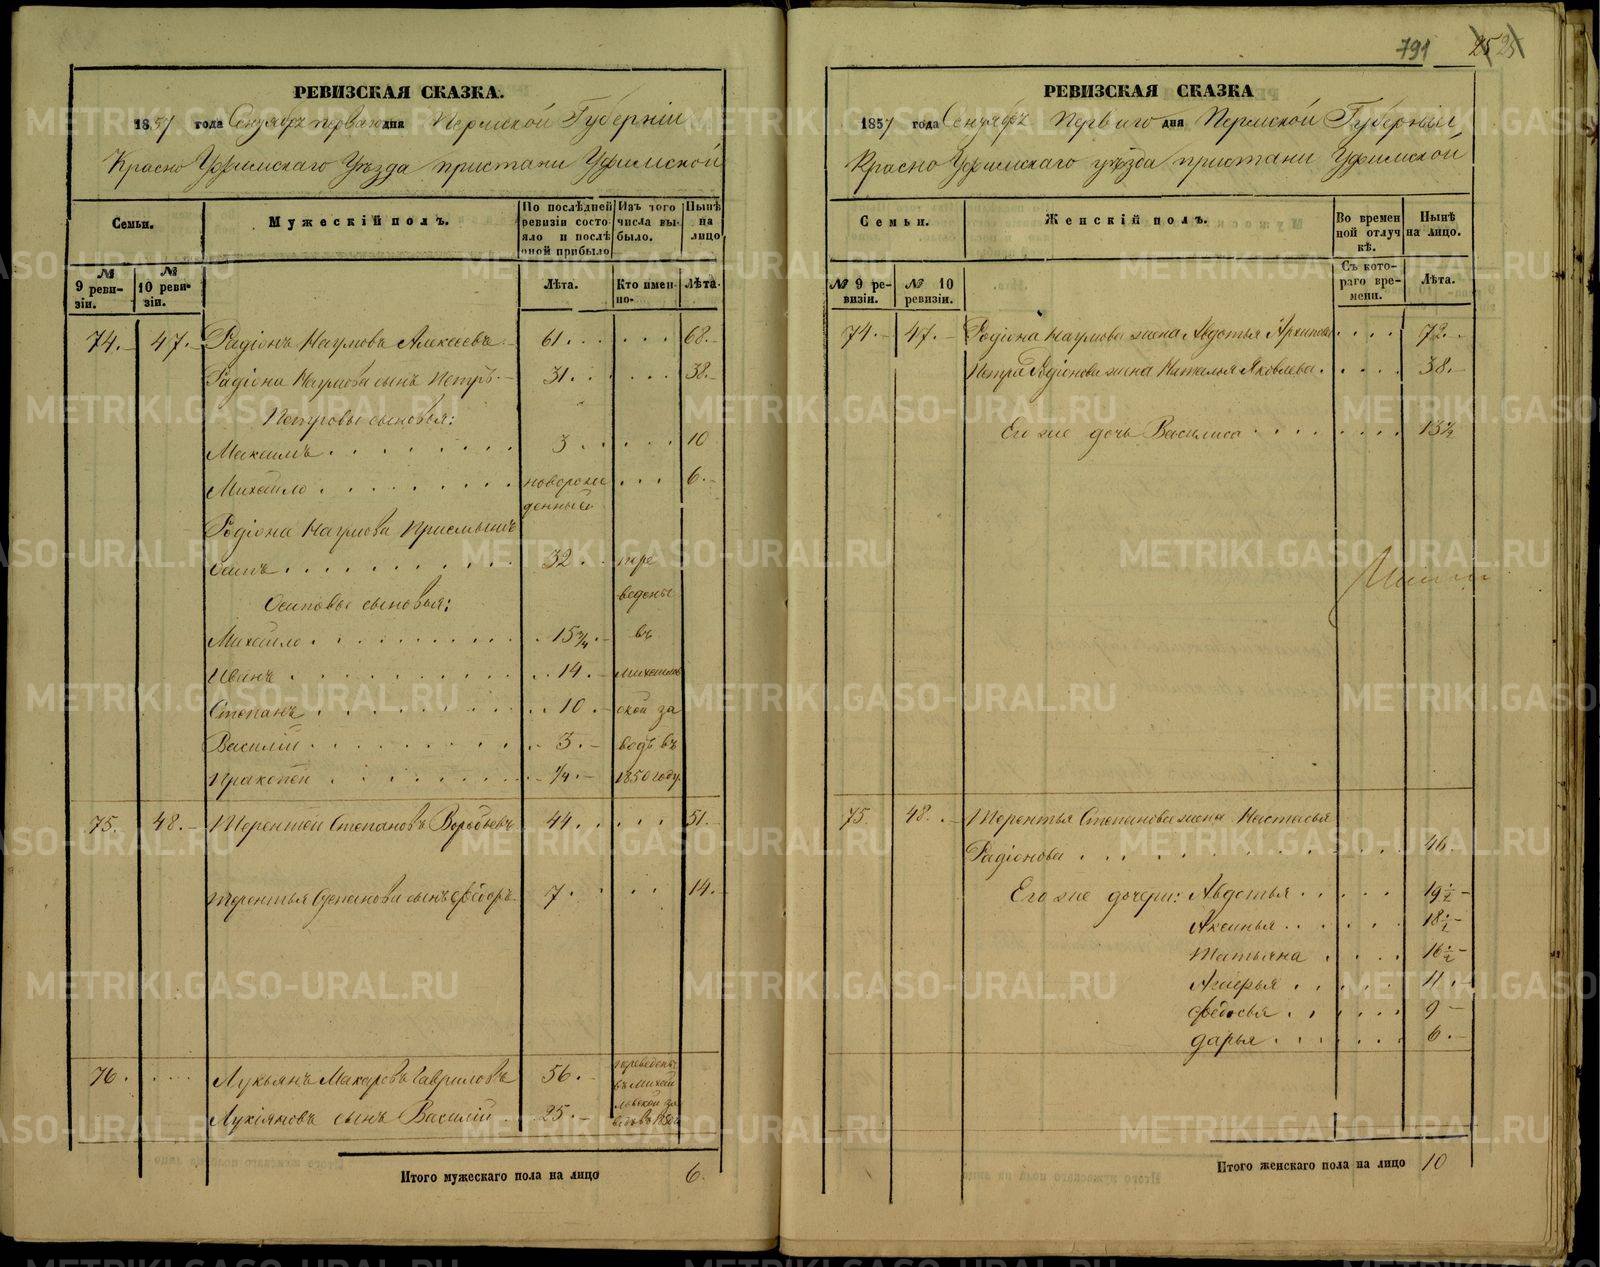 РЕВИЗСКАЯ СКАЗКА.
1857 года Сентября перваго дня Пермской Губерніи
Красно Уфимскаго Уѣзда пристани Уфимской
Семьи.
Мужескій полъ.
По послѣдней ревизіи состояло и послѣ оной прибыло
Изъ того числа выбыло.
Нынѣ на лицо
№ 9 ревизіи.
№ 10 ревизіи.
Лѣта.
Кто именно.
Лѣта.
74. 47. Радіонъ Наумовъ Алексѣевъ 61 68.
Радіона Наумова сынъ Петръ 31 38.
Петровы сыновья:
Максимъ 3 10
Михайло новорожденный 6.
Родіона Наумова Приемышъ
Осипъ 32 пере
Осиповы сыновья: ведены
Михайло 15 3/4 въ
Иванъ 14 Михайлов
Степанъ 10 ской за
Василій 3 водъ въ
Пракопей 1/4 1850 году
75. 48. Терентей Степановъ Воробьевъ 44 51.
Терентья Степанова сынъ Федоръ 7 14.
76. Лукьянъ Макаровъ Гавриловъ 56 переведены въ Михай
Лукіяновъ сынъ Василій 25 ловской за
Итого мужескаго пола на лицо 6.
791 25 25
РЕВИЗСКАЯ СКАЗКА
1857 года Сентября Перваго дня Пермской Губерніи
Красно Уфимскаго уѣзда пристани Уфимской
Семьи.
Женскій полъ.
Во временной отлучкѣ.
Нынѣ на лицо.
№ 9 ревизіи.
№ 10 ревизіи.
Съ котораго времени.
Лѣта.
74. 47. Родіона Наумова жена Авдотья Архипова 72.
Петра Родіонова жена Наталья Яковлева 38.
Его же дочь Василиса 13 1/2
75 48. Терентья Степанова жена Настасья
Радіонова 46.
Его же дочери: Авдотья 19 1/2
Аксинья 18 1/2
Татьяна 16 1/2
11.
Федосья 9
Дарья 6.
Итого женскаго пола на лицо 10
METRIKI.GASO-URAL.RU